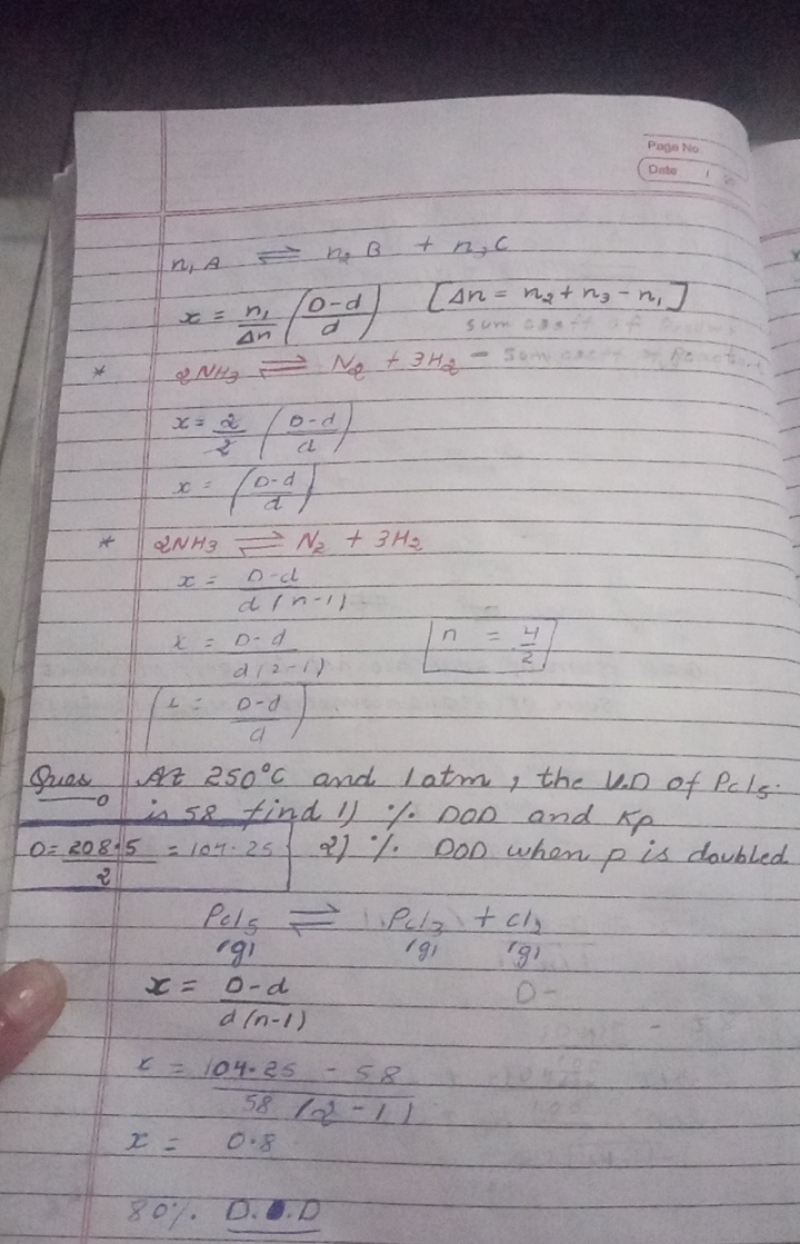 Page No
Date
n₁A ⇌ n₂B + n₃C
x = n₁/Δn (D-d/d) [Δn = n₂ + n₃ - n₁]
sum coeff of
* 2NH₃ ⇌ N₂ + 3H₂ - sum coeff of
x = 2/2 (D-d/d)
x = (D-d/d)
* 2NH₃ ⇌ N₂ + 3H₂
x = D-d/d(n-1)
x = D-d/d(2-1) [n = 4/2]
x = D-d/d
Ques At 250°C and 1atm, the V.D of Pcl₅
is 58 find 1) % DOD and Kp
D = 208.5/2 = 104.25 2) % DOD when p is doubled
Pcl₅ ⇌ Pcl₃ + cl₂
(g) (g) (g)
x = D-d/d(n-1) D-
x = 104.25 - 58/58(2-1)
x = 0.8
80% D.O.D